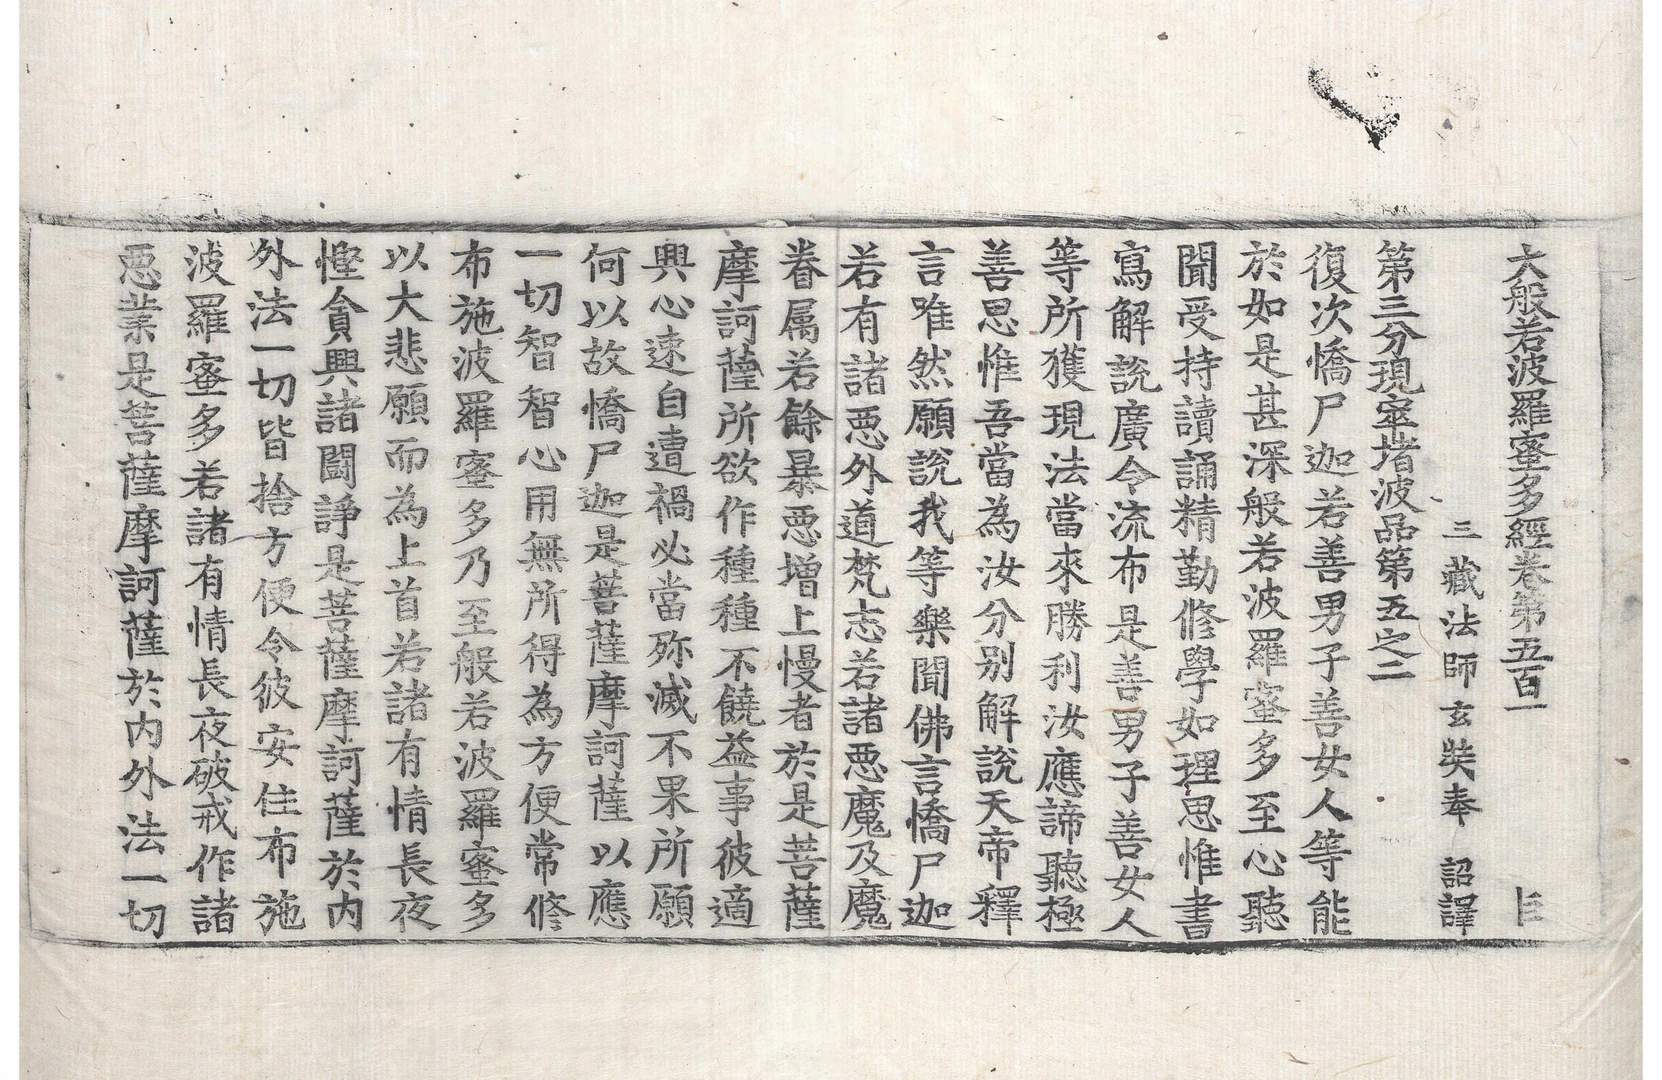 大般若波羅蜜多經卷第五百一
三藏法師玄奘奉 詔譯
第三分現窣堵波品第五之二
復次憍尸迦若善男子善女人等能
於如是甚深般若波羅蜜多至心聽
聞受持讀誦精勤修學如理思惟書
寫解說廣令流布是善男子善女人
等所獲現法當來勝利汝應諦聽極
善思惟吾當為汝分別解說天帝釋
言唯然願說我等樂聞佛言憍尸迦
若有諸惡外道梵志若諸惡魔及魔
眷属若餘暴惡增上慢者於是菩薩
摩訶薩所欲作種種不饒益事彼適
興心速自遭禍必當殄滅不果所願
何以故憍尸迦是菩薩摩訶薩以應
一切智智心用無所得為方便常修
布施波羅蜜多乃至般若波羅蜜多
以大悲願而為上首若諸有情長夜
慳貪興諸鬪諍是菩薩摩訶薩於內
外法一切皆捨方便令彼安住布施
波羅蜜多若諸有情長夜破戒作諸
惡業是菩薩摩訶薩於內外法一切